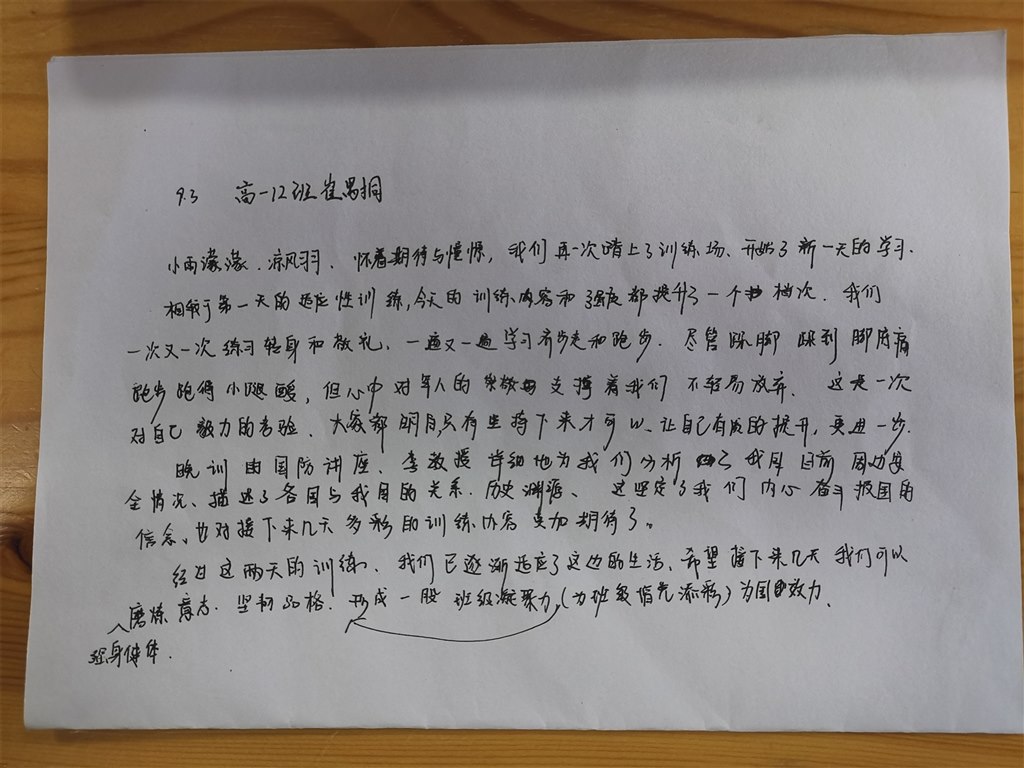 9.3 高一12班 崔思桐
小雨濛濛、凉风习习、怀着期待与憧憬，我们再一次踏上了训练场、开始了新一天的学习.
相较于第一天的适应性训练,今天的训练内容和强度都提升了一个档次. 我们
一次又一次练习转身和敬礼、一遍又一遍学习齐步走和跑步. 尽管踩脚踩到脚后痛
跑步跑得小腿酸，但心中对军人的崇敬支撑着我们不轻易放弃. 这是一次
对自己毅力的考验、大家都明白,只有坚持下来才可以、让自己有质的提升,更进一步.
晚训由国防讲座、李教授详细地为我们分析了我国目前周边安
全情况、描述了各国与我国的关系. 历史渊源、这坚定了我们内心奋斗报国的
信念、也对接下来几天多彩的训练内容更加期待了。
经过这两天的训练、我们已逐渐适应了这边的生活、希望接下来几天我们可以
磨炼意志. 坚韧品格. 形成一股班级凝聚力,(为班级增光添彩)为国效力.
强身健体.